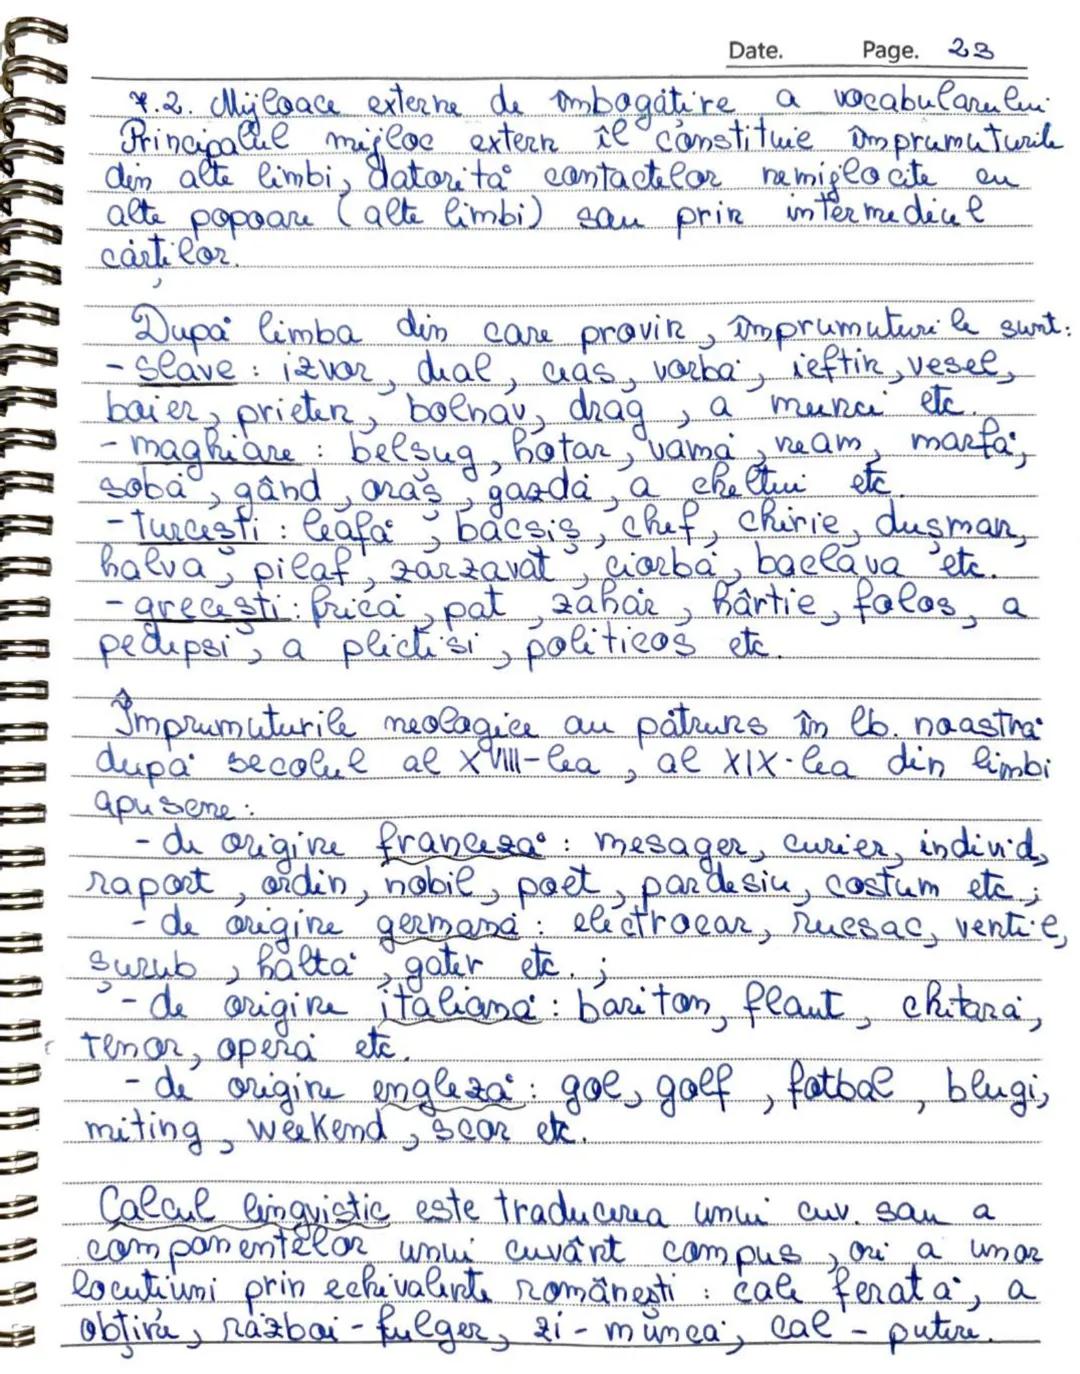 Date. Page. 23
7.2. Mijloace externe de îmbogățire a vocabularului
Principalul mijloc extern îl constituie împrumuturile
din alte limbi, datorită contactelor nemijlocite cu
alte popoare (alte limbi) sau prin intermediul
cărților.
După limba din care provin, împrumuturile sunt:
- slave: izvor, deal, ceas, vorbă, ieftin, vesel,
boier, prieten, bolnav, drag, a munci etc.
- maghiare: belșug, hotar, vamă, neam, marfă,
sobă, gând, oraș, gazdă, a cheltui etc.
- turcești: leafă, bacșiș, chef, chirie, dușman,
halva, pilaf, zarzavat, ciorbă, baclava etc.
- grecești: frică, pat, zahăr, hârtie, folos, a
pedepsi, a plictisi, politicos etc.
Împrumuturile neologice au pătruns în lb. noastră
după secolul al XVIII-lea, al XIX-lea din limbi
apusene:
- de origine franceză: mesager, curier, individ,
raport, ordin, nobil, poet, pardesiu, costum etc.;
- de origine germană: electrocar, rucsac, ventil,
șurub, haltă, gater etc.;
- de origine italiană: bariton, flaut, chitară,
tenor, operă etc.
- de origine engleză: gol, golf, fotbal, blugi,
miting, weekend, scor etc.
Calcul lingvistic este traducerea unui cuv. sau a
componentelor unui cuvânt compus, ori a unor
locuțiuni prin echivalente românești: cale ferată, a
obține, război-fulger, zi-muncă, cal-putere.